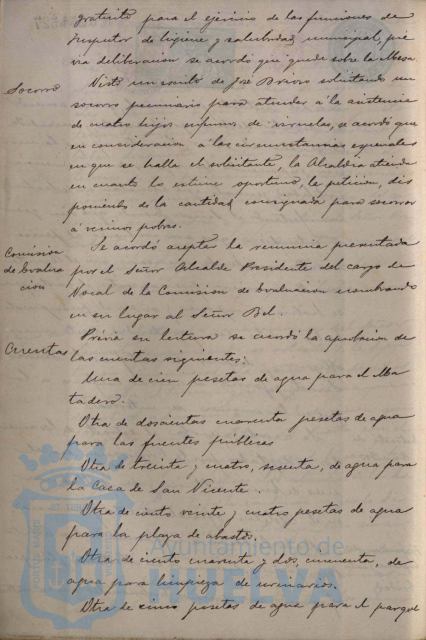 gratuito para el ejercicio de las funciones de
Inspector de higiene y salubridad municipal, pré
via deliberacion se acordó que quede sobre la Mesa.
Socorro
Visto un escrito de José solicitando un
socorro pecuniario para atender á la asistencia
de cuatro hijos enfermos de viruelas, se acordó que
en consideracion á las circunstancias especiales
en que se halla el solicitante, la Alcaldía atienda
en cuanto lo estime oportuno, la peticion, dis
poniendo de la cantidad consignada para socorrer
á vecinos pobres.
Comision
de Evalua
cion
Se acordó aceptar la renuncia presentada
por el Señor Alcalde Presidente del cargo de
Vocal de la Comision de Evaluacion nombrando
en su lugar al Señor Bel.
Cuentas
Prévia su lectura se acordó la aprobacion de
las cuentas siguientes:
Una de cien pesetas de agua para el Ma
tadero.
Otra de doscientas cuarenta pesetas de agua
para las fuentes públicas
Otra de treinta y cuatro, sesenta, de agua para
la Casa de San Vicente.
Otra de ciento veinte y cuatro pesetas de agua
para la plaza de abastos.
Otra de ciento cuarenta y dos, cincuenta, de
agua para limpieza de urinarios.
Otra de cinco pesetas de agua para el parque
Ayuntamiento de
HUELVA